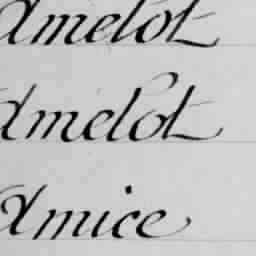 Amelot
Amelot
Amice